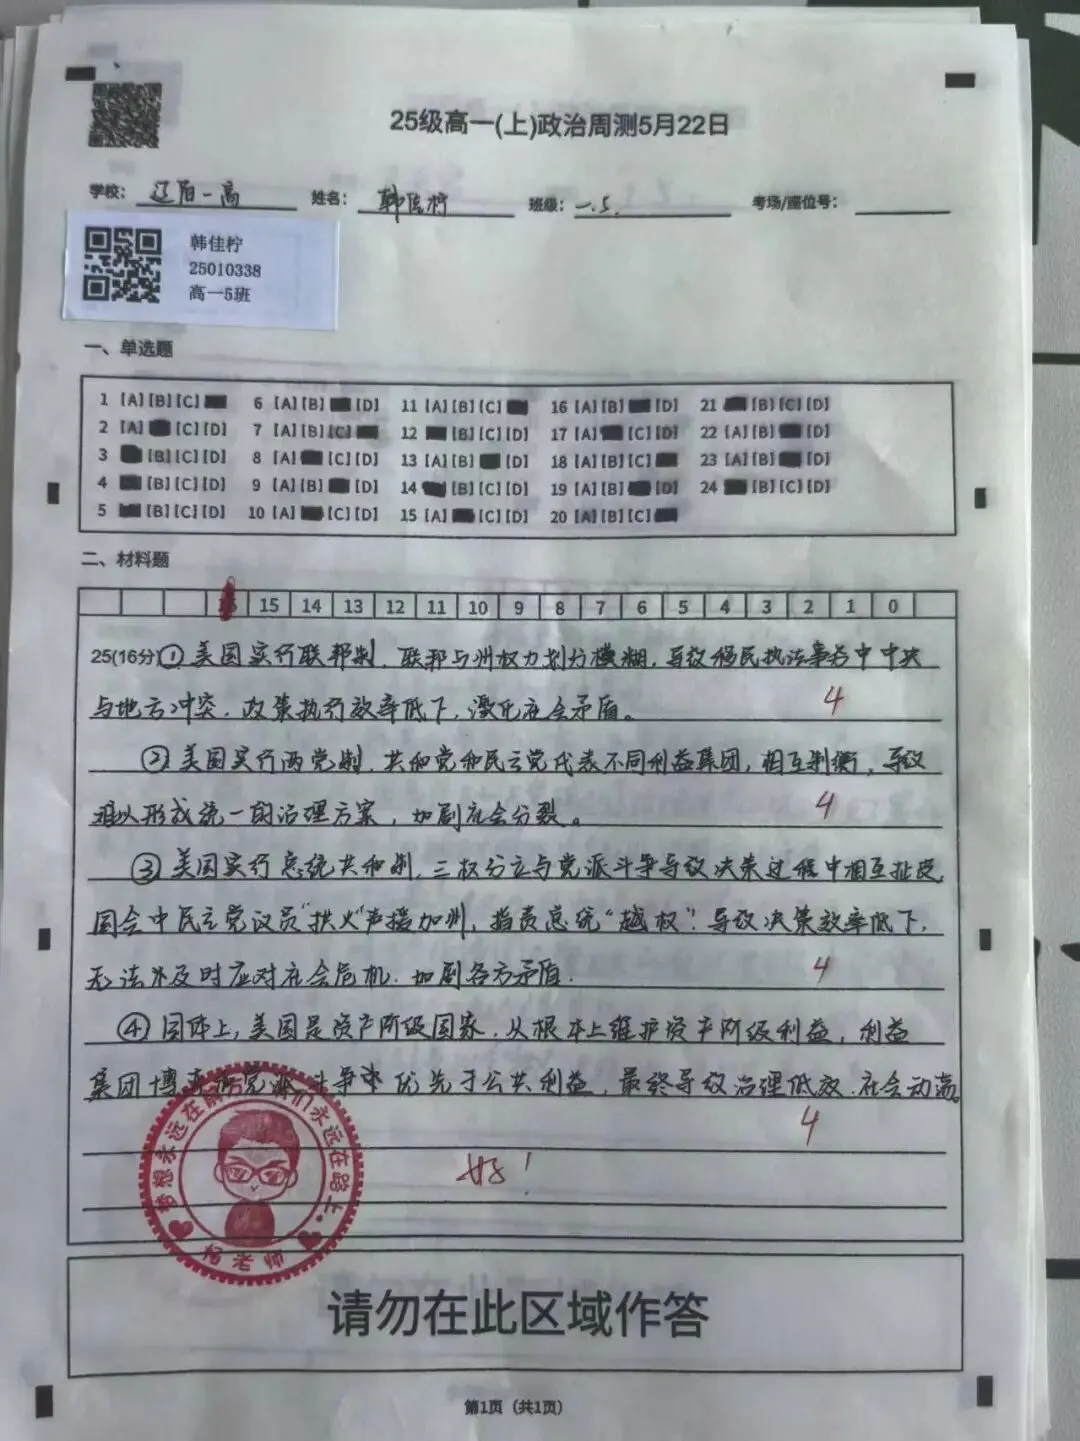 25级高一(上)政治周测5月22日
学校： 辽阳一高 姓名： 韩佳柠 班级： 一.5. 考场/座位号：
韩佳柠
25010338
高一5班
一、单选题
1 [A][B][C] 6 [A][B] [D] 11 [A][B][C] 16 [A][B] [D] 21 [B][C][D]
2 [A] [C][D] 7 [A][B][C] 12 [B][C][D] 17 [A] [C][D] 22 [A][B] [D]
3 [B][C][D] 8 [A] [C][D] 13 [A][B] [D] 18 [A][B][C] 23 [A][B] [D]
4 [B][C][D] 9 [A][B] [D] 14 [B][C][D] 19 [A][B] [D] 24 [B][C][D]
5 [B][C][D] 10 [A] [C][D] 15 [A] [C][D] 20 [A][B][C]
二、材料题
15 14 13 12 11 10 9 8 7 6 5 4 3 2 1 0
25(16分)①美国实行联邦制，联邦与州权力划分模糊，导致移民执法事务中中央
与地方冲突，政策执行效率低下，激化社会矛盾。
4
②美国实行两党制，共和党和民主党代表不同利益集团，相互制衡，导致
难以形成统一的治理方案，加剧社会分裂。
4
③美国实行总统共和制，三权分立与党派斗争导致决策过程中相互扯皮
国会中民主党议员"拱火"声援加州，指责总统"越权"，导致决策效率低下，
无法及时应对社会危机，加剧各方矛盾.
4
④国体上，美国是资产阶级国家，从根本上维护资产阶级利益，利益
集团博弈和党派斗争优先于公共利益，最终导致治理低效，社会动荡。
4
好！
梦想永远在 们永远在路上
杨老师
请勿在此区域作答
第1页（共1页）